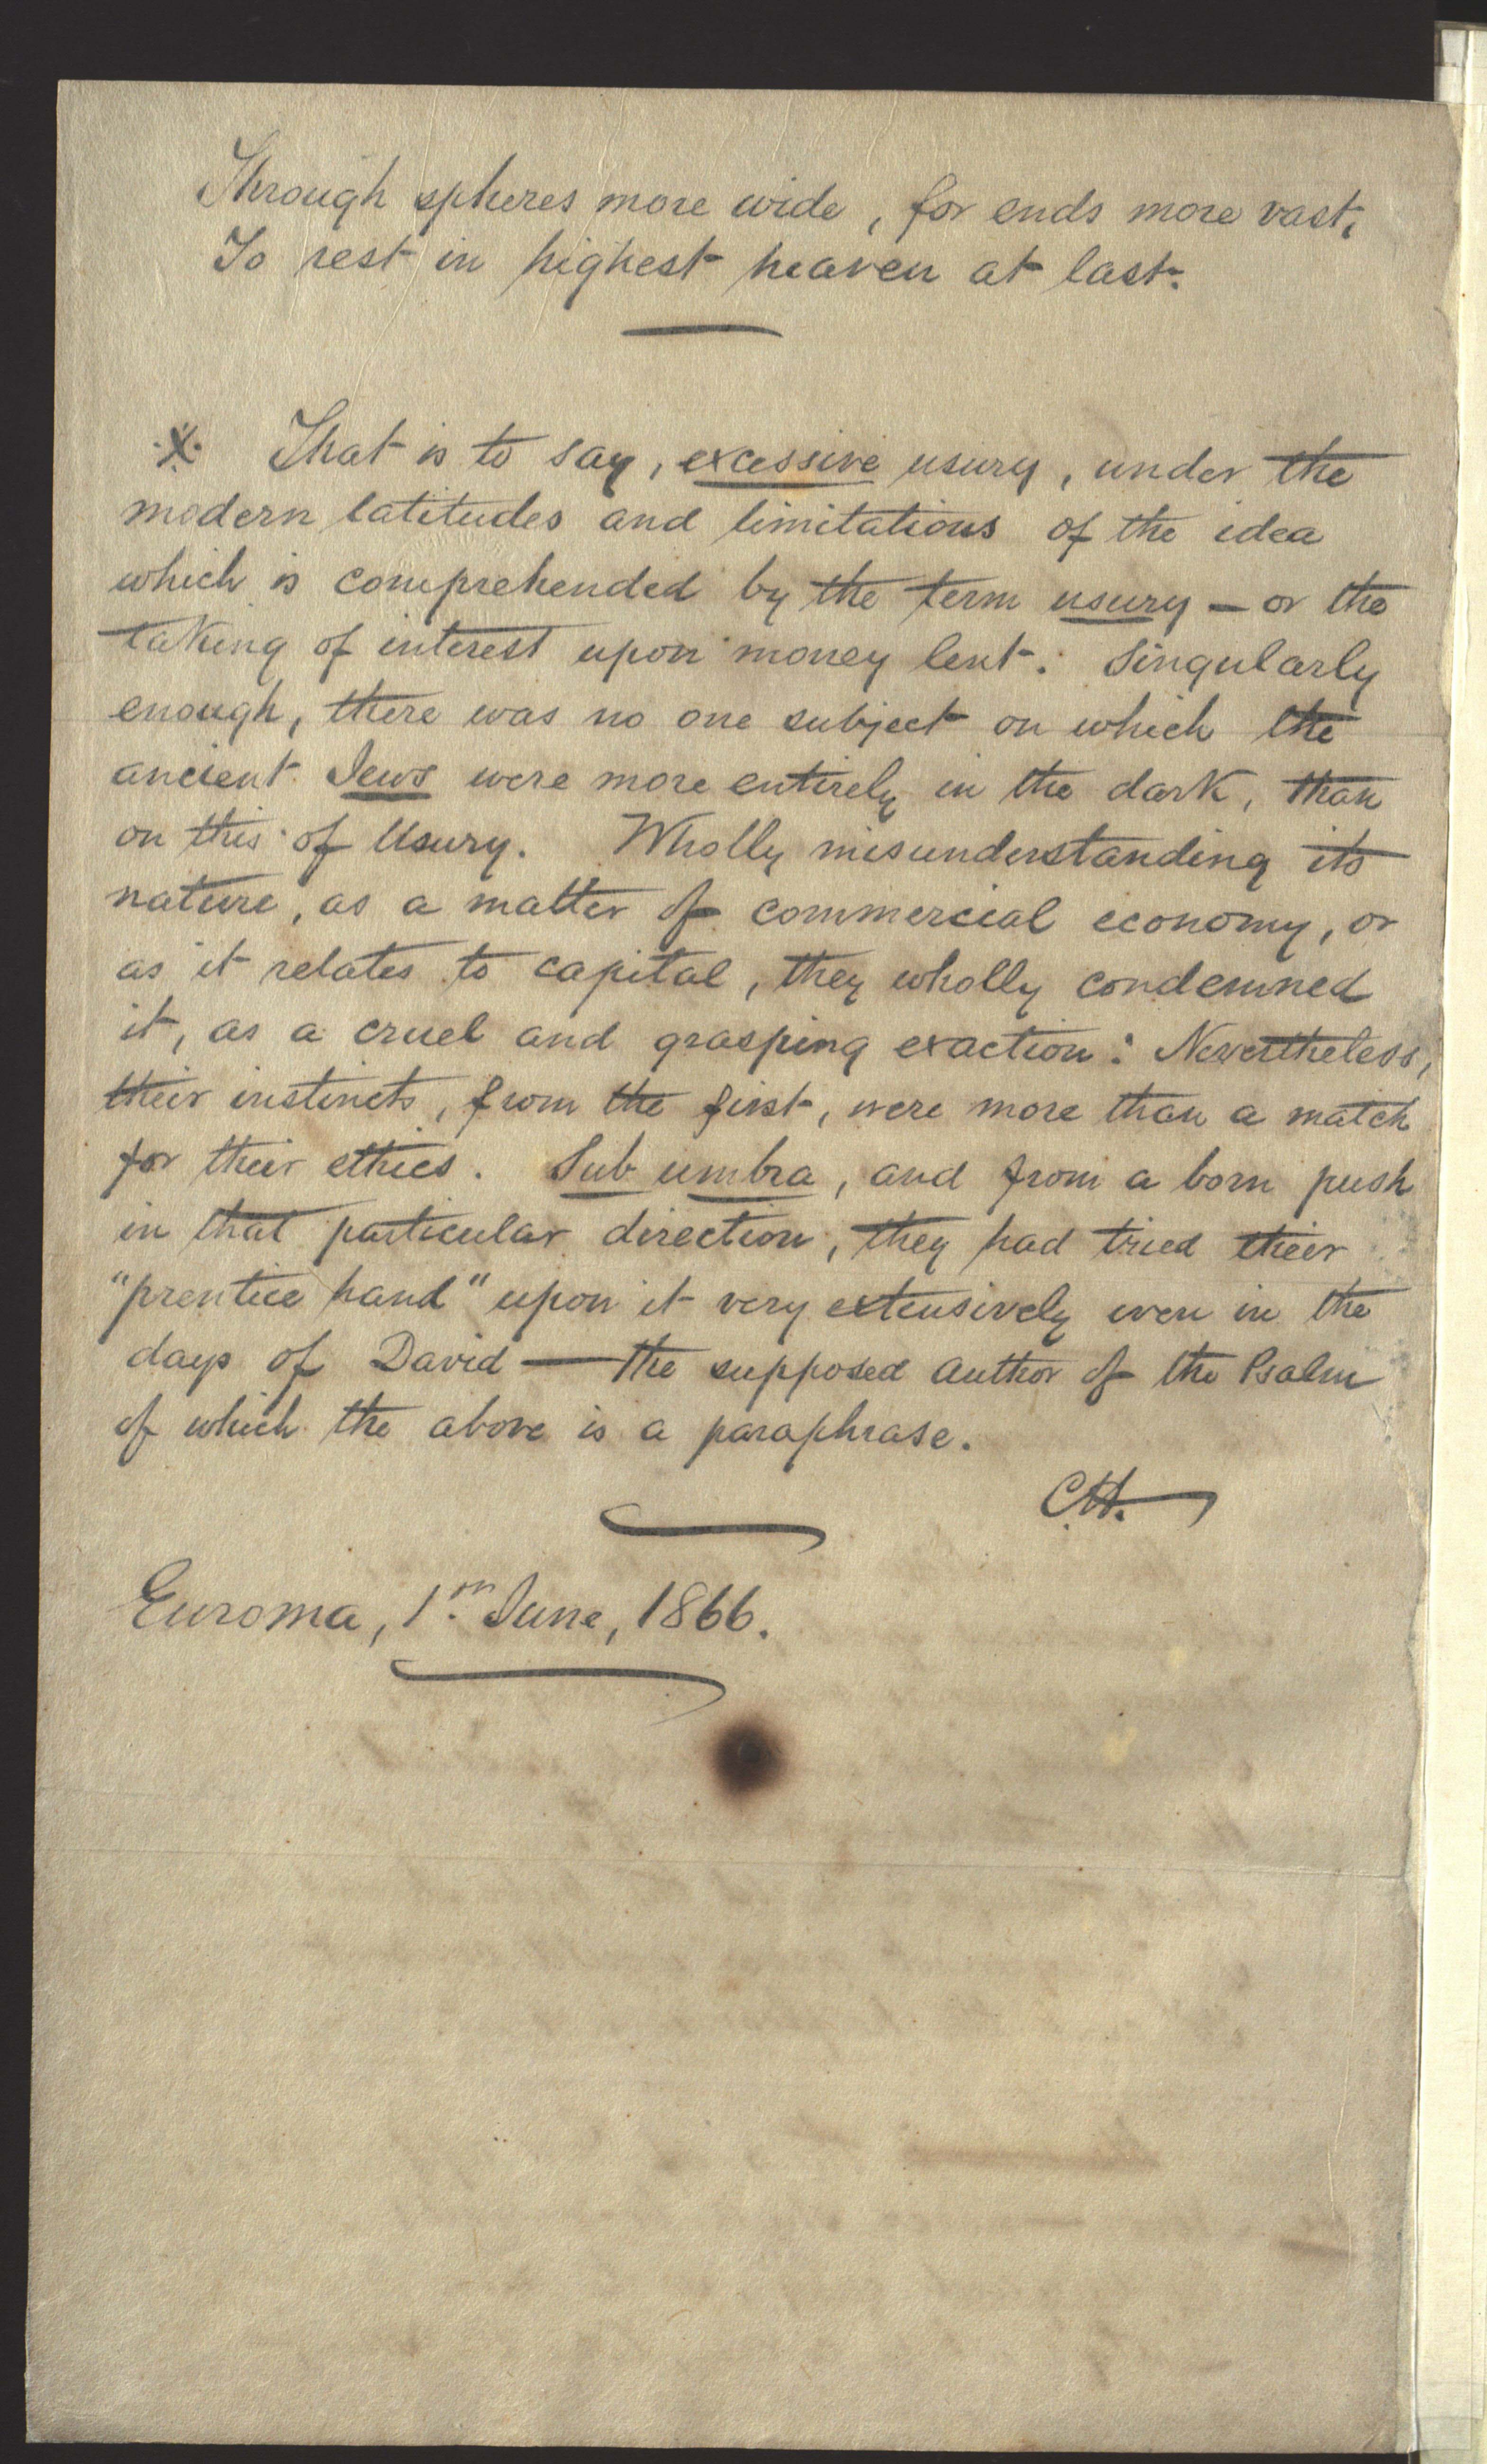 Through spheres more wide, for ends more vast,
To rest in highest heaven at last.
·X· That is to say, excessive usury, under the
modern latitudes and limitations of the idea
which is comprehended by the term usury — or the
taking of interest upon money lent: Singularly
enough, there was no one subject on which the
ancient Jews were more entirely in the dark, than
on this of Usury. Wholly misunderstanding its
nature, as a matter of commercial economy, or
as it relates to capital, they wholly condemned
it, as a cruel and grasping exaction: Nevertheless,
their instincts, from the first, were more than a match
for their ethics. Sub umbra, and from a born push
in that particular direction, they had tried their
"prentice hand" upon it very extensively even in the
days of David — the supposed author of the Psalm
of which the above is a paraphrase.
C.H.
Euroma, 1st June, 1866.